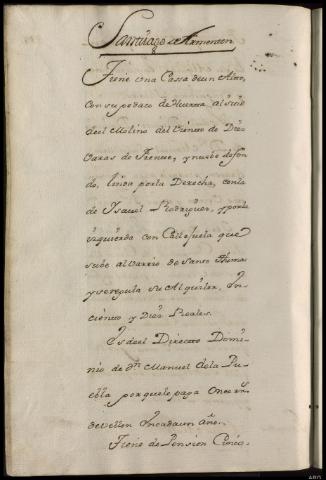 Santiago de Armenten
Tiene una Cassa de un Alto,
con su pedazo de Huerta al sitio
del Molino del Ciento de Diez
Varas de Frente, y nuebe de fon
do, linda por la Derecha, con la
de Ysauel Rodriguez, y por la
izquierda con Callejuela que
sube al Varrio de Santo Thomas
y se regula su Alquiler, En
ciento y Diez Reales.
Es del Directto Domi-
nio de Dn Manuel de la Pu
ebla por que le paga Once rrs
de vellon En cada un Año.
Tiene de Pension Cinco.